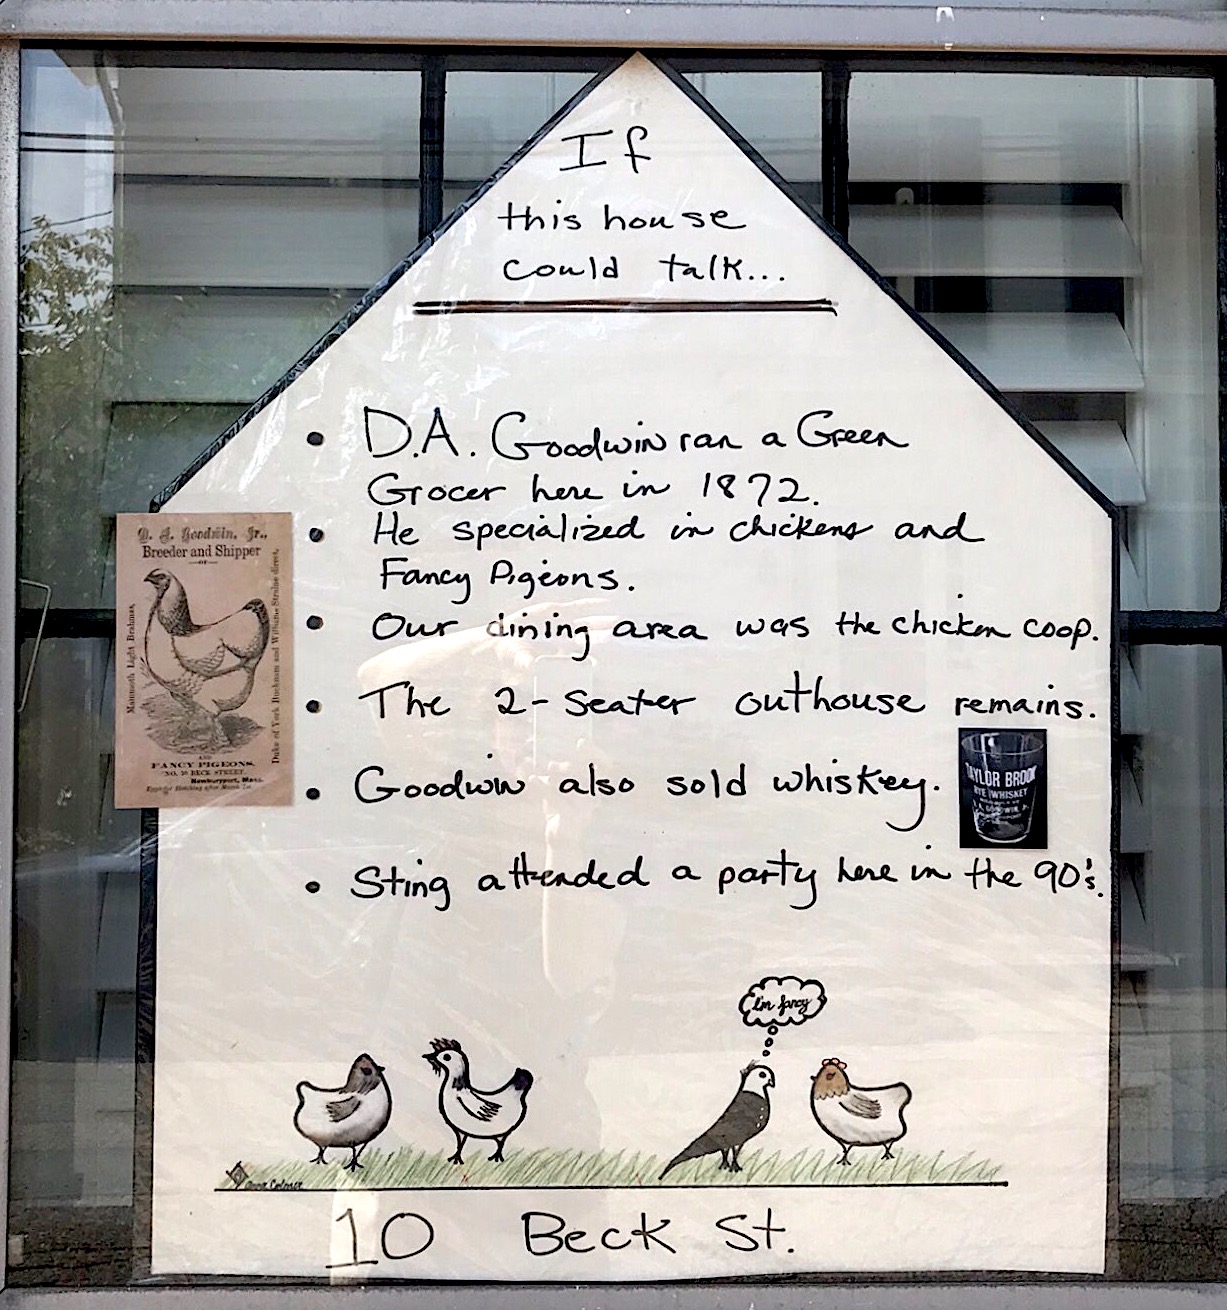 If
this house
could talk...
• D.A. Goodwin ran a Green
Grocer here in 1872.
• He specialized in chickens and
Fancy Pigeons.
• Our dining area was the chicken coop.
• The 2-seater outhouse remains.
• Goodwin also sold whiskey.
• Sting attended a party here in the 90's.
D. A. Goodwin, Jr.,
Breeder and Shipper
—OF—
Mammoth Light Brahmas,
Duke of York Buckman and Williams Strains direct,
AND
FANCY PIGEONS.
NO. 10 BECK STREET.
Newburyport, Mass.
TAYLOR BROOK
RYE WHISKEY
D. A. GOODWIN, Jr.
I'm fancy
10 Beck St.